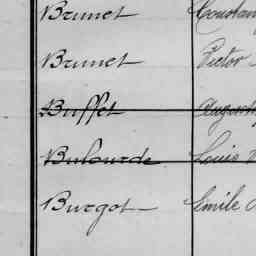 Brunet Constant
Brunet Victor
Buffet August
Bulourde Louis
Burgot Emile